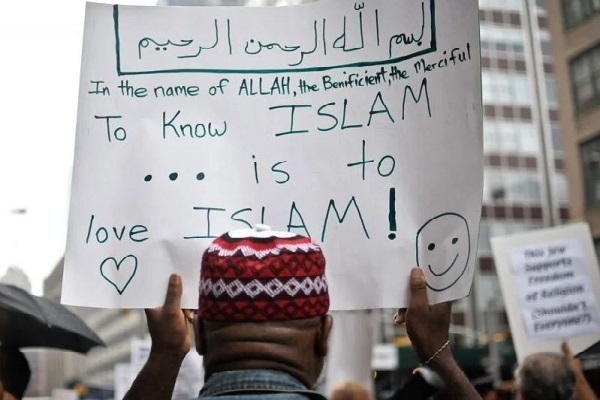 بسم الله الرحمن الرحيم
In the name of ALLAH, the Benificient, the Merciful
To Know ISLAM
... is to
love ISLAM!
This Jew
Supports
Freedom
of Religion
(Shouldn't
Everyone?)